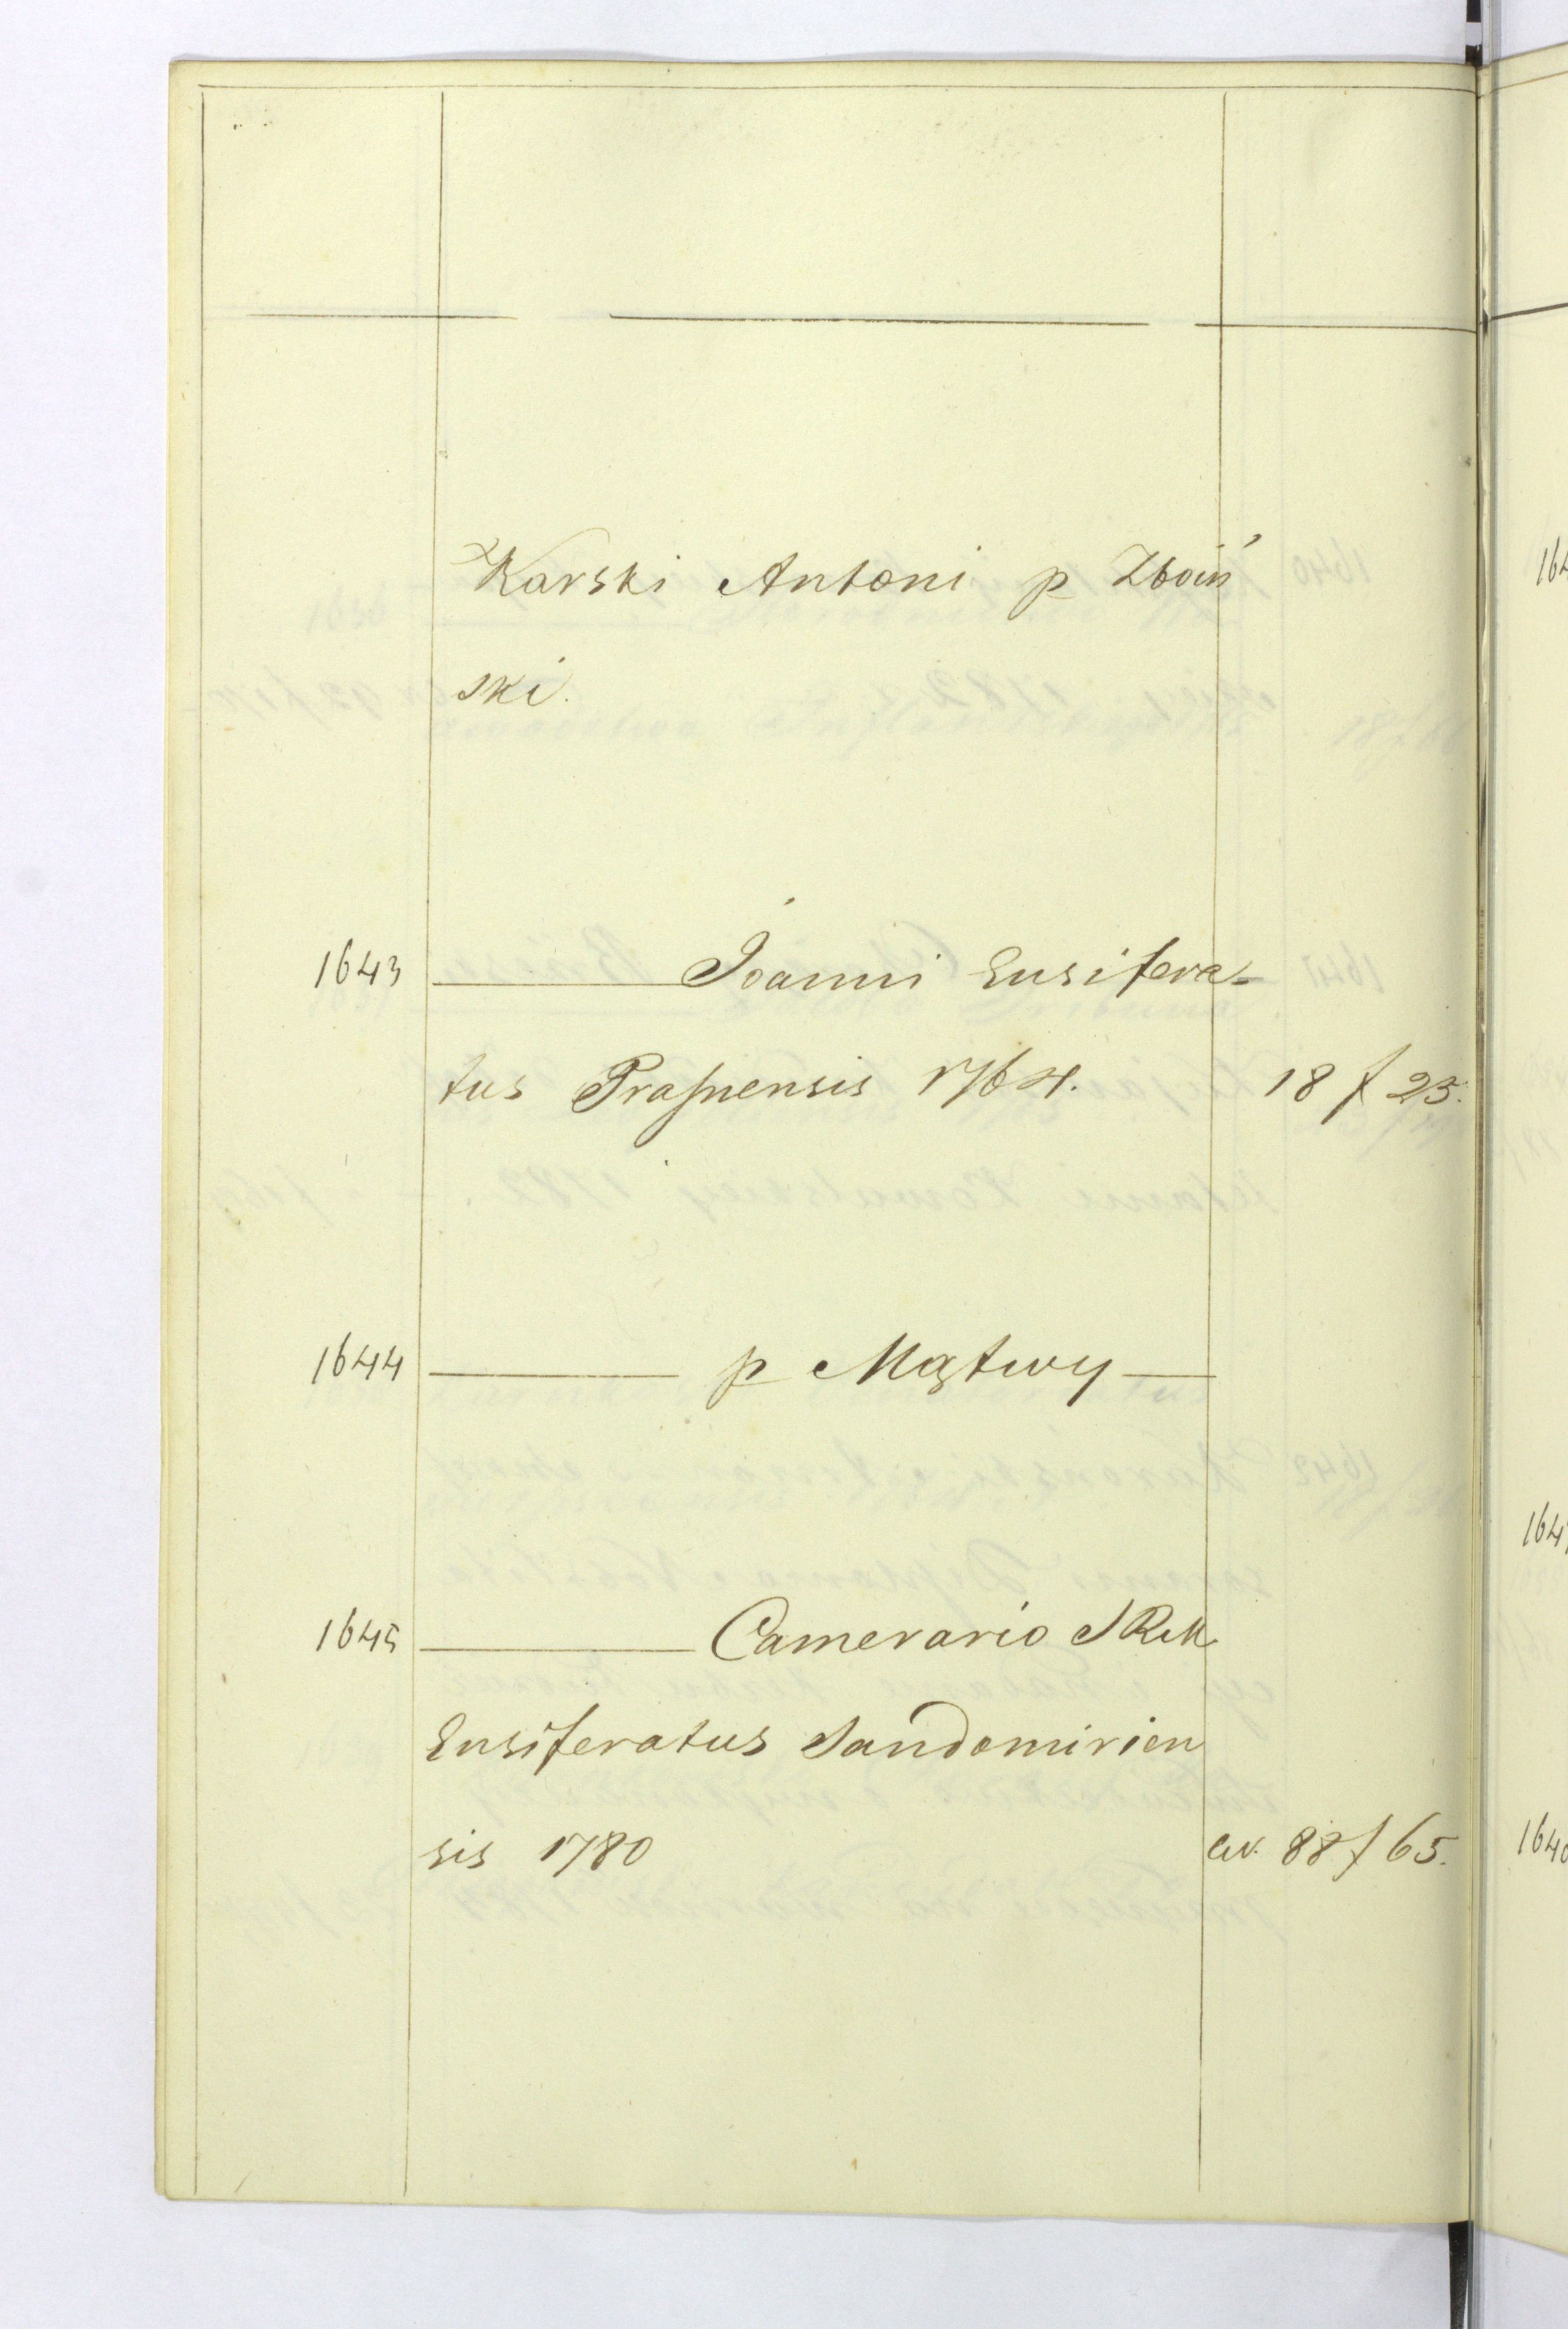 Karski Antoni p Zboiń
ski.
1643 Joanni Ensifera-
tus Prasnensis 1764. 18 f 23.
1644 p Mątwy
1645 Camerario SRM
Ensiferatus Sandomirien
sis 1780 Ca. 88 f 65.